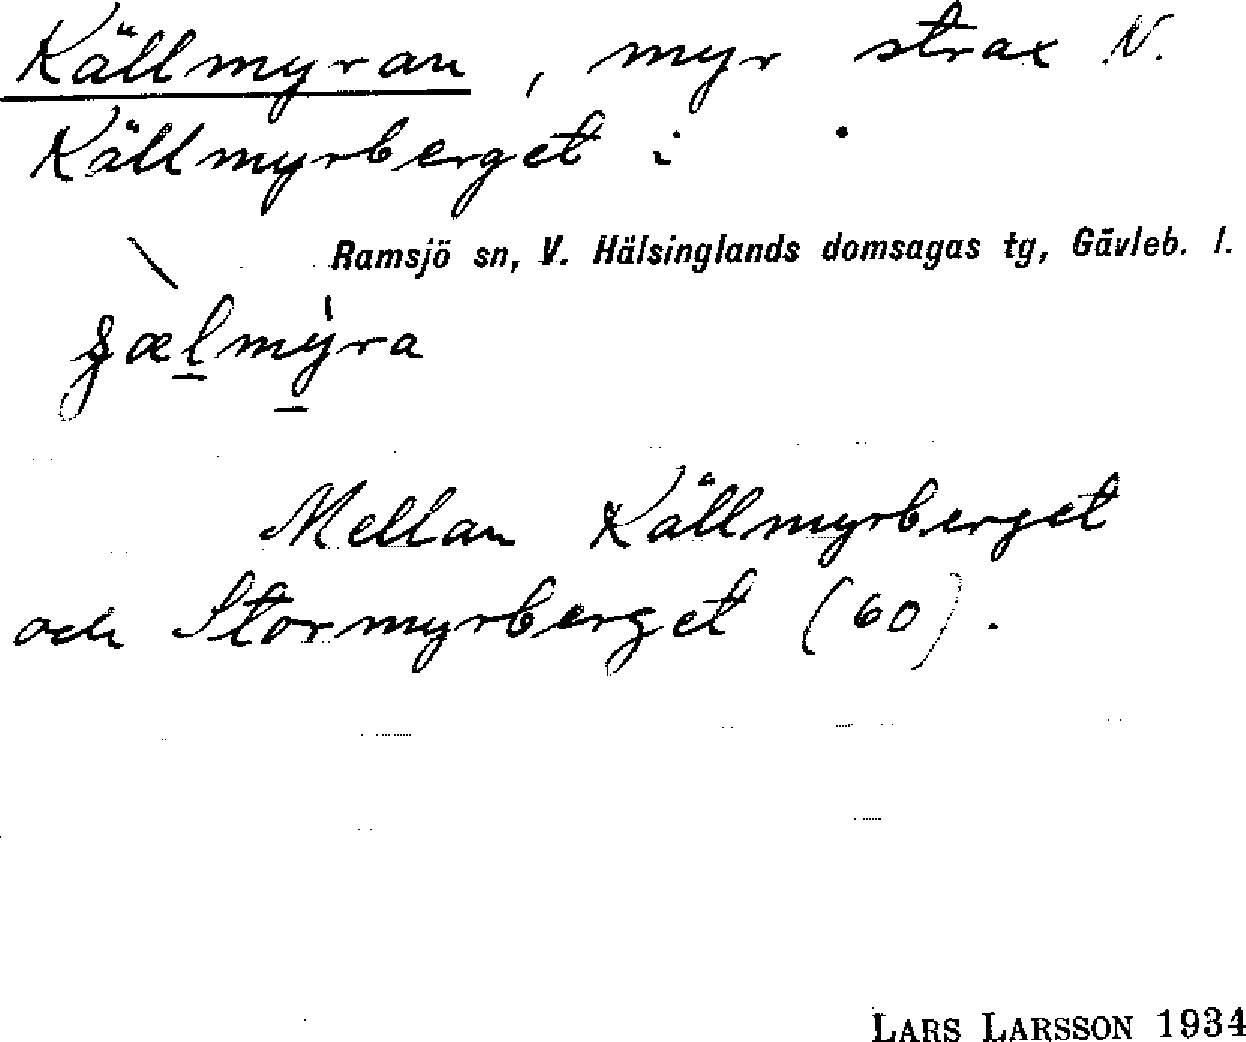 Källmyran, myr strax N.
Källmyrberget i
Ramsjö sn, V. Hälsinglands domsagas tg, Gävleb. l.
Mellan Källmyrberget
och Stormyrberget (60).
LARS LARSSON 1934